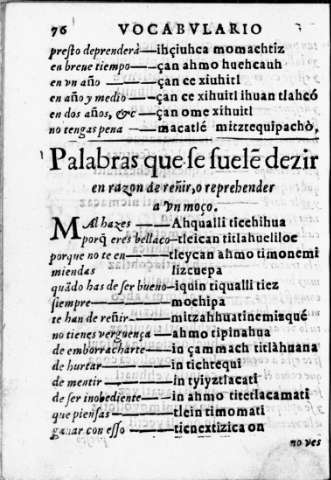 76 VOCABVLARIO
presto deprenderà—ihçiuhca momachtiz
en breue tiempo—çan ahmo huehcauh
en vn año—çan ce xiuhitl
en año y medio—çan ce xihuitl ihuan tlahcó
en dos años, &c—çan ome xihuitl
no tengas pena—macatlé mitztequipachò.
Palabras que se suelē dezir
en razon de reñir, o reprehender
a vn moço.
MAl hazes—Ahqualli ticchihua
porq̃ eres bellaco—tleican titlahueliloc
porque no te en—tleycan ahmo timonemi
miendas lizcuepa
quādo has de ser bueno—iquin tiqualli tiez
siempre—mochipa
te han de reñir—mitzahhuatinemisqué
no tienes verguença—ahmo tipinahua
de emborracharte—in çammach titlàhuana
de hurtar—in tichtequi
de mentir—in tyiyztlacati
de ser inobediente—in ahmo titetlacamati
que piensas—tlein timomati
ganar con esso—ticnextizica on
no ves